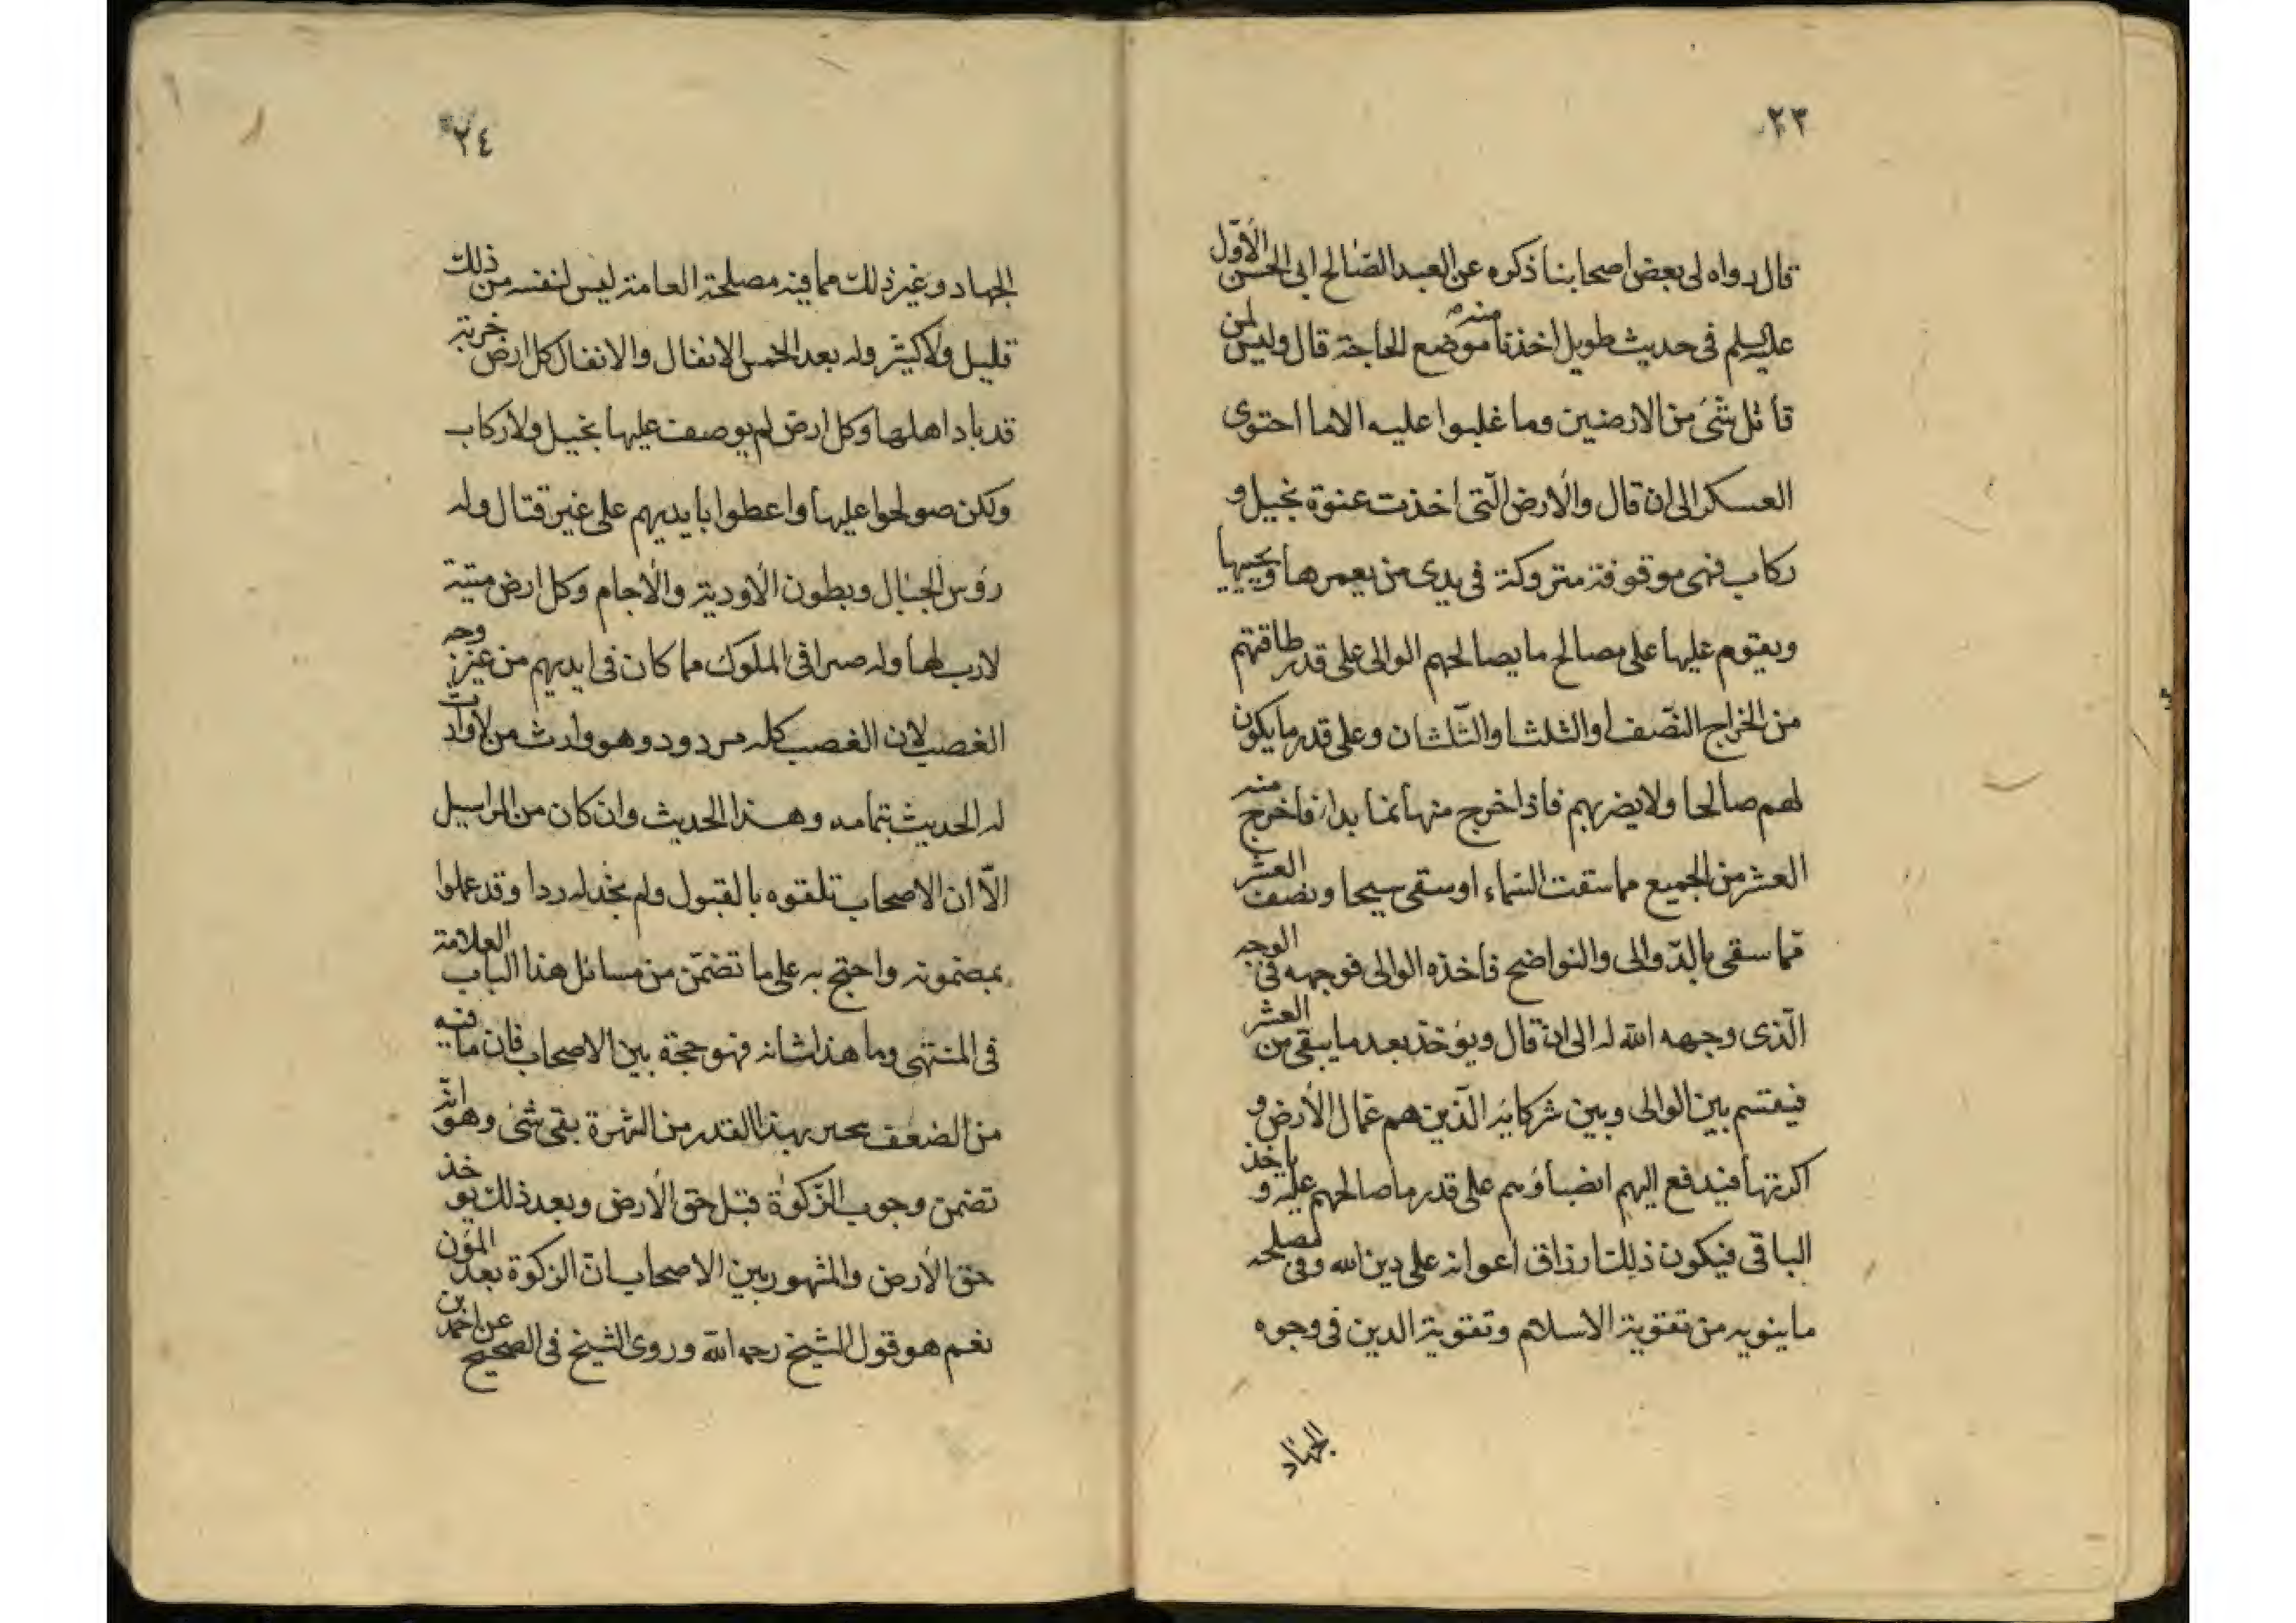 ٢٣
قال رواه لى بعض اصحابنا ذكره عن العبد الصالح ابى الحسن الأوّل
عليه السلم فى حديث طويل اخذنا منه موضع الحاجة قال وليس لمن
قاتل شئ من الارضين وما غلبوا عليه الا ما احتوى
العسكر الى ان قال والأرض الّتى اخذت عنوة بخيل و
ركاب فهى موقوفة متروكة فى يدى من يعمرها ويحييها
ويقوم عليها على مصالح ما يصالحهم الوالى على قدر طاقتهم
من الخراج النّصف او الثلث او الثّلثان وعلى قدر ما يكون
لهم صالحا ولا يضربهم فاذا اخرج منها نما بدا فاخرج منه
العشر من الجميع مما سقت السّماء او سقى سيحا ونصف العشر
مما سقى بالدّوالى والنواضح فاخذه الوالى فوجهه فى الوجه
الّذى وجهه الله له الى ان قال ويؤخذ بعد ما يبقى من العشر
فيقسم بين الوالى وبين شركايه الّذين هم عمال الأرض و
اكرتها فيدفع اليهم انضباؤهم على قدر ما صالحهم عليه و ياخذ
الباقى فيكون ذلك ارزاق اعوانه على دين الله وفى مصلحه
ما ينوبه من تقوية الاسلام وتقوية الدين فى وجوه
الجهاد
٢٤
الجهاد وغير ذلك مما فيه مصلحة العامة ليس لنفسه من ذلك
قليل ولا كثير وله بعد الخمس الانفال والانفال كل ارض خربة
قد باد اهلها وكل ارض لم يوصف عليها بخيل ولا ركاب
ولكن صولحوا عليها واعطوا بايديهم على غير قتال وله
رؤس الجبال وبطون الأودية والأجام وكل ارض ميتة
لا رب لها وله صرافى الملوك مما كان فى ايديهم من غير وجه
الغصب لان الغصب كله مردود وهو وارث من لا وارث
له الحديث بتمامه وهذا الحديث وان كان من المراسيل
الّا ان الاصحاب تلقوه بالقبول ولم نجد له ردا وقد عملوا
بمضمونه واحتج به على ما تضمّن من مسائل هذا الباب العلامة
فى المنتهى وما هذا شانه فهو حجة بين الاصحاب فان ما فيه
من الضعف يحبر بهذا القدر من الشهرة بقى شئ وهو انّه
تضمن وجوب الزّكوٰة قبل حق الأرض وبعد ذلك يوخذ
حق الأرض والمشهور بين الاصحاب ان الزكوة بعد المؤن
نعم هو قول الشيخ رحمه الله وروى الشيخ فى الصحيح عن احمد بن